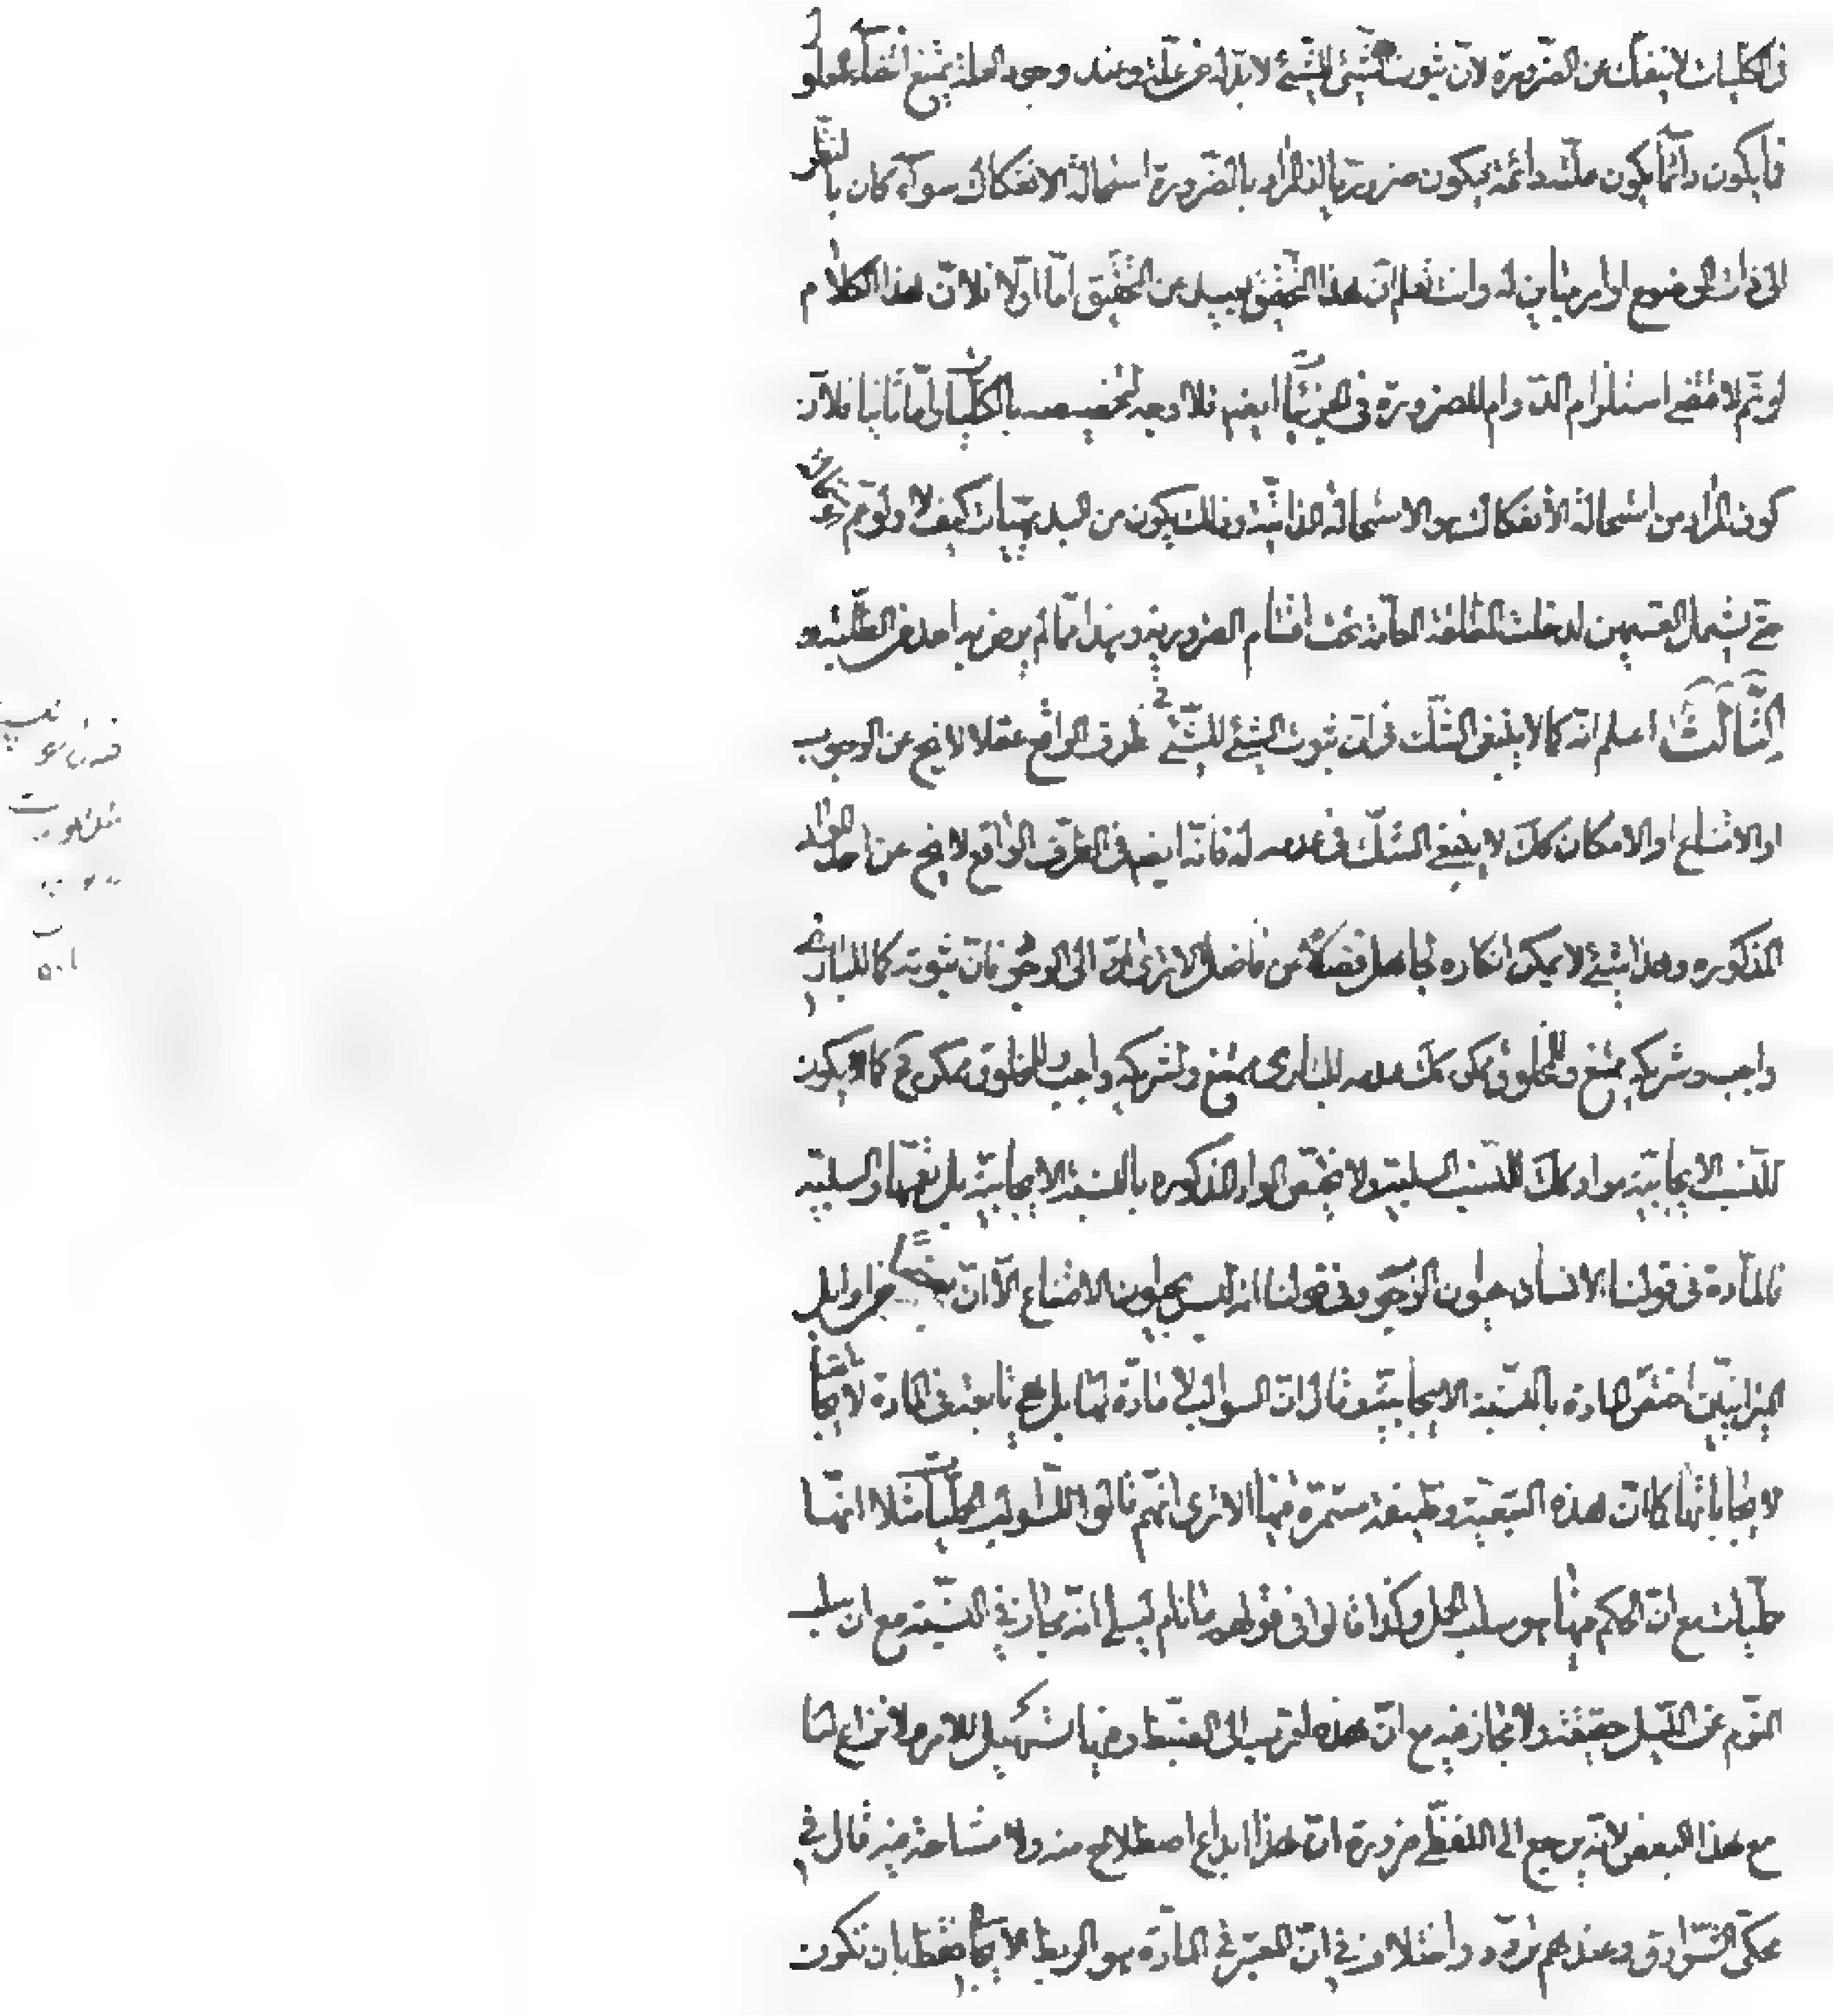 في الكليات لا ينفك عن الضرورة لان ثبوت الشئ للشئ لا بد له من علة وعند وجود العلة يمتنع انتفاء المعلول
فما يكون دائما يكون علته دائمة فيكون ضروريا اذ المراد بالضرورة استحالة الانفكاك سواء كان بالنظر
الى ذات الموضوع او امر مباين له وانت تعلم ان هذا التحقيق بعيد عن التحقيق اما اولا فلان هذا الكلام
لو تم لاقتضى استلزام الدوام للضرورة في الجزئيات ايضا فلا وجه لتخصيصه بالكليات واما ثانيا فلان
كون المراد من استحالة الانفكاك هو الاستحالة الذاتية وذلك يكون من البديهيات كيف لا ولو عم
حتى يشمل القسمين لدخلت المطلقة العامة تحت اقسام الضرورية وهذا مما لم يرض به احد من الطلبة و
الثالث اعلم انه كما لا ينبغي الشك في ان ثبوت الشئ للشئ في ظرف الواقع عقلا لا يخ عن الوجوب
او الامتناع او الامكان كك لا ينبغي الشك في عدمه له فانه ايضا في الظرف الواقع لا يخ عن احد المواد
المذكوره وهذا شئ لا يمكن انكاره لجاهل فضلا عن فاضل الا ترى الى الوجود فان ثبوته كما للبارى
واجب ولشريكه ممتنع وللمخلوق ممكن كك عدمه للبارى ممتنع ولشريكه واجب وللمخلوق ممكن فح كما يكون
للنسب الايجابية مواد كك للنسب السلبية ولا يختص المواد المذكوره بالنسبة الايجابية بل تعمها والسلبية
فالمادة في قولنا الانسان حيوان الوجوب وفي قولنا انه ليس بحيوان الامتناع الا ان بعضا من اوايل
الميزانيين اختص المادة بالنسبة الايجابية وقال ان السوالب لا مادة لها بل هي تابعة في المادة
لايجاباتها كما ان هذه التبعية وظيفة مستمرة فيها الا ترى انهم قالوا للسوالب الحمليات مثلا انها
حمليات مع ان الحكم فيها هو سلب الحمل وكذا قالوا في قولهم ما نام ليلي انه مجاز في النسبة مع ان سلب
النوم عن الليل حقيقة ولا مجاز فيه مع ان هذه اقرب الى الضبط وفيها تسهيل للامر ولا نزاع لنا
مع هذا البعض لانه يرجع الى اللفظي ضرورة ان هذا ابداع اصطلاح منه ولا مشاحة فيه قال في
محكى الشوارق وعندهم تردد واختلاف في ان المعتبر في المادة هو الربط الايجابي فقط بان تكون